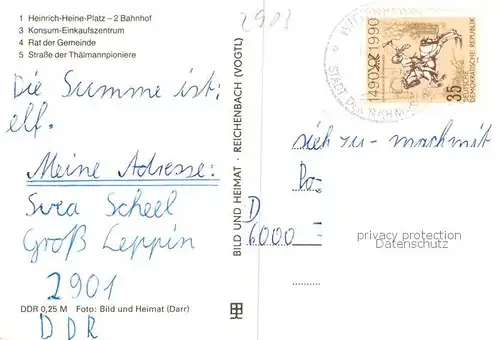 1 Heinrich-Heine-Platz – 2 Bahnhof
3 Konsum-Einkaufszentrum
4 Rat der Gemeinde
5 Straße der Thälmannpioniere
Die Summe ist:
elf.
Meine Adresse:
Svea Scheel
Groß Leppin
2901
DDR 0,25 M Foto: Bild und Heimat (Darr)
DDR
BILD UND HEIMAT · REICHENBACH (VOGTL)
2903
1490 1990
35
DEUTSCHE
DEMOKRATISCHE REPUBLIK
sieh zu - machmit
Po-
D
6000
privacy protection
Datenschutz